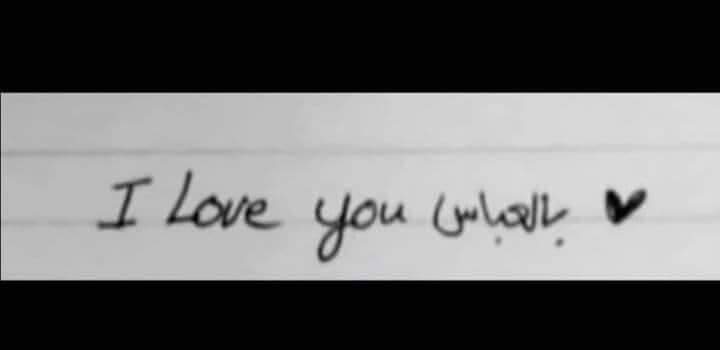 I Love you بالعباس ♥